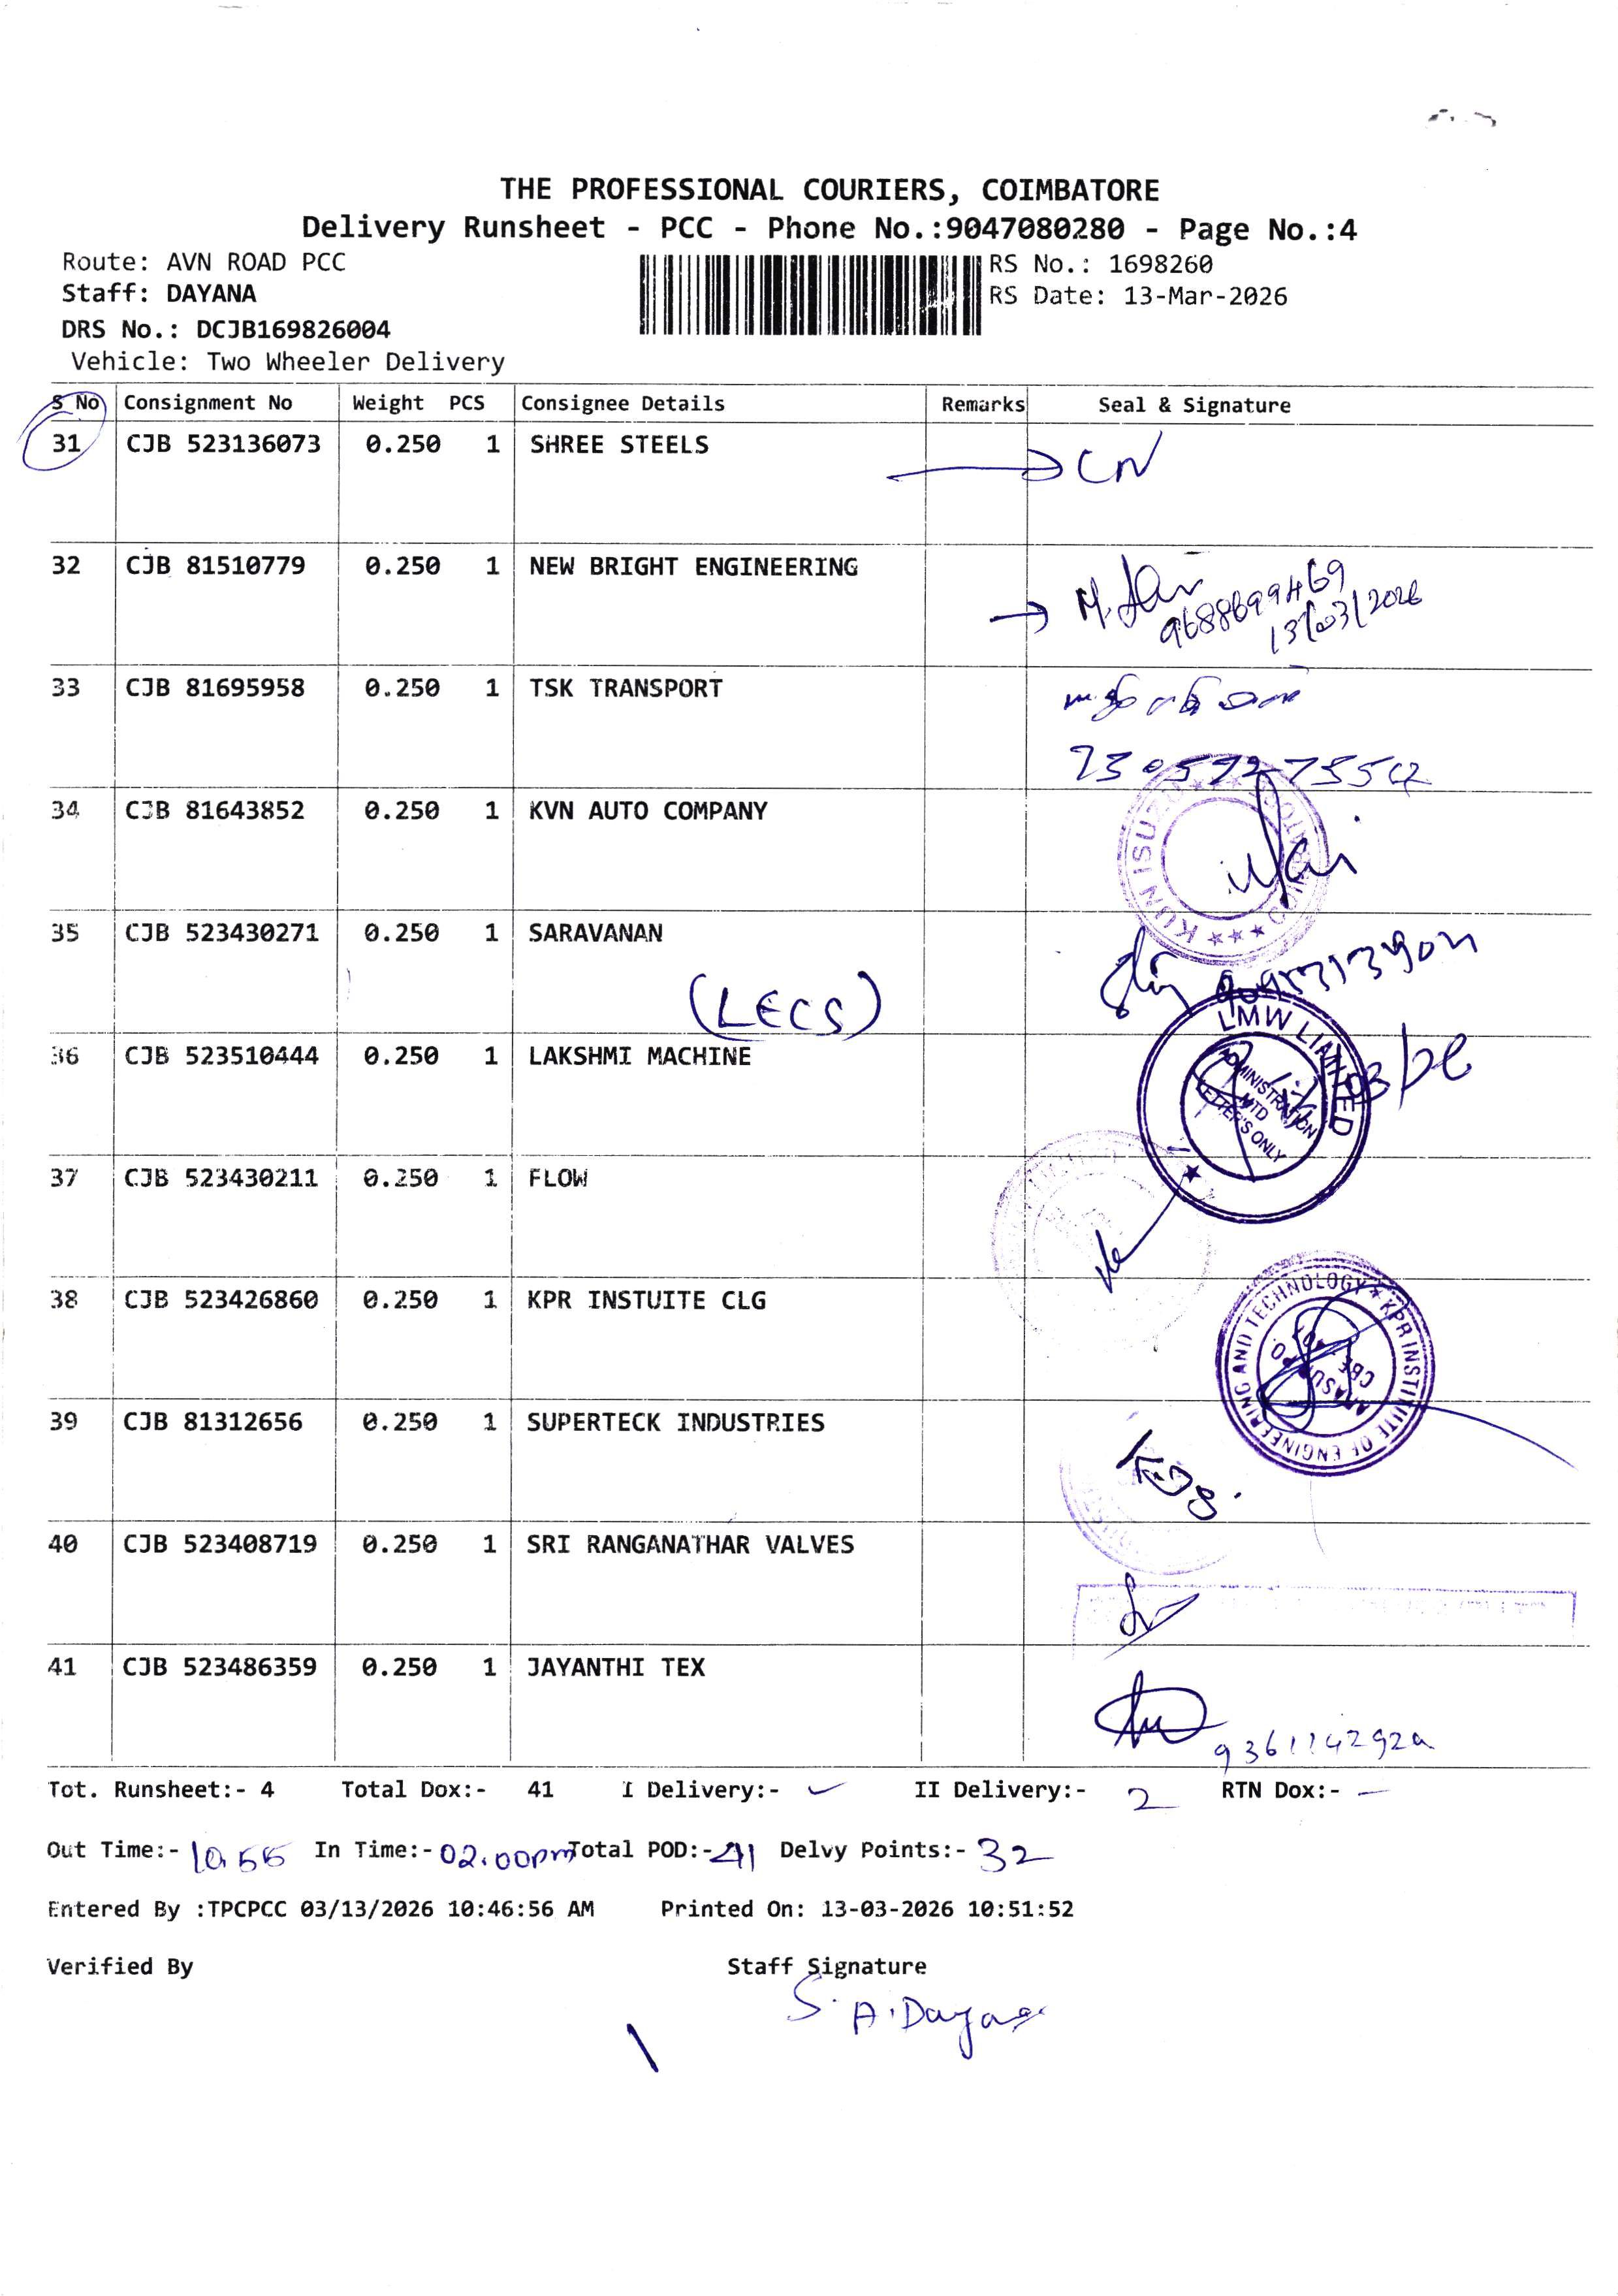 THE PROFESSIONAL COURIERS, COIMBATORE
Delivery Runsheet - PCC - Phone No.:9047080280 - Page No.:4
Route: AVN ROAD PCC
RS No.: 1698260
Staff: DAYANA
RS Date: 13-Mar-2026
DRS No.: DCJB169826004
Vehicle: Two Wheeler Delivery
S No Consignment No Weight PCS Consignee Details Remarks Seal & Signature
31 CJB 523136073 0.250 1 SHREE STEELS
CN
32 CJB 81510779 0.250 1 NEW BRIGHT ENGINEERING
9688699469
13/03/2026
33 CJB 81695958 0.250 1 TSK TRANSPORT
34 CJB 81643852 0.250 1 KVN AUTO COMPANY
KUN ISUZU
35 CJB 523430271 0.250 1 SARAVANAN
(LECS)
36 CJB 523510444 0.250 1 LAKSHMI MACHINE
LMW LIMITED
ADMINISTRATION
MTD
LETTER'S ONLY
37 CJB 523430211 0.250 1 FLOW
38 CJB 523426860 0.250 1 KPR INSTUITE CLG
KPR INSTITUTE OF ENGINEERING AND TECHNOLOGY
39 CJB 81312656 0.250 1 SUPERTECK INDUSTRIES
40 CJB 523408719 0.250 1 SRI RANGANATHAR VALVES
41 CJB 523486359 0.250 1 JAYANTHI TEX
Tot. Runsheet:- 4 Total Dox:- 41 I Delivery:- II Delivery:- 2 RTN Dox:- —
Out Time:- 10.55 In Time:- 02.00pm Total POD:- 41 Delvy Points:- 32
Entered By :TPCPCC 03/13/2026 10:46:56 AM Printed On: 13-03-2026 10:51:52
Verified By Staff Signature
S.A.Dayana